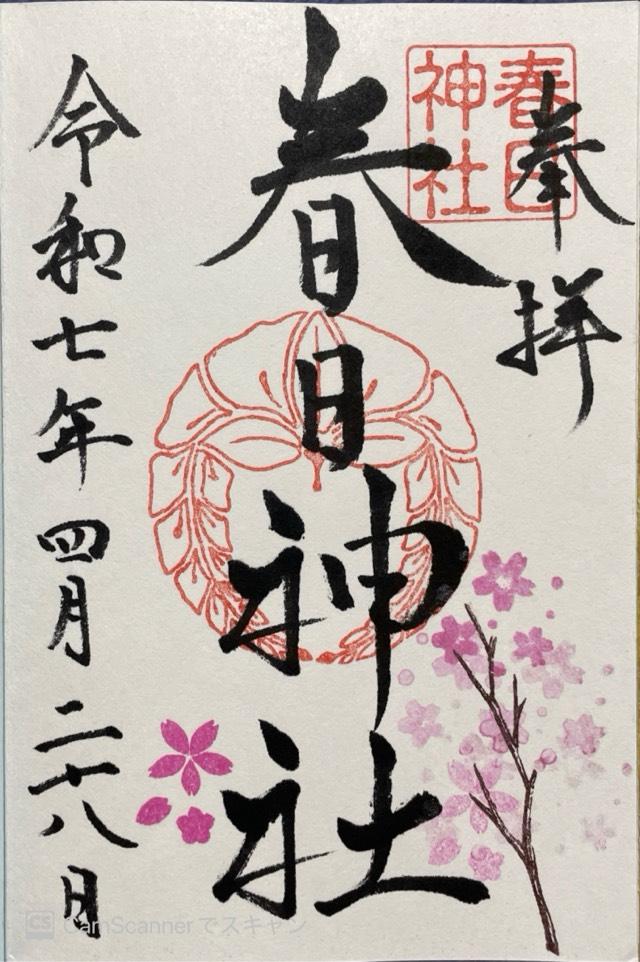 奉拝
春日神社
春日神社
令和七年四月二十八日
CS CamScannerでスキャン